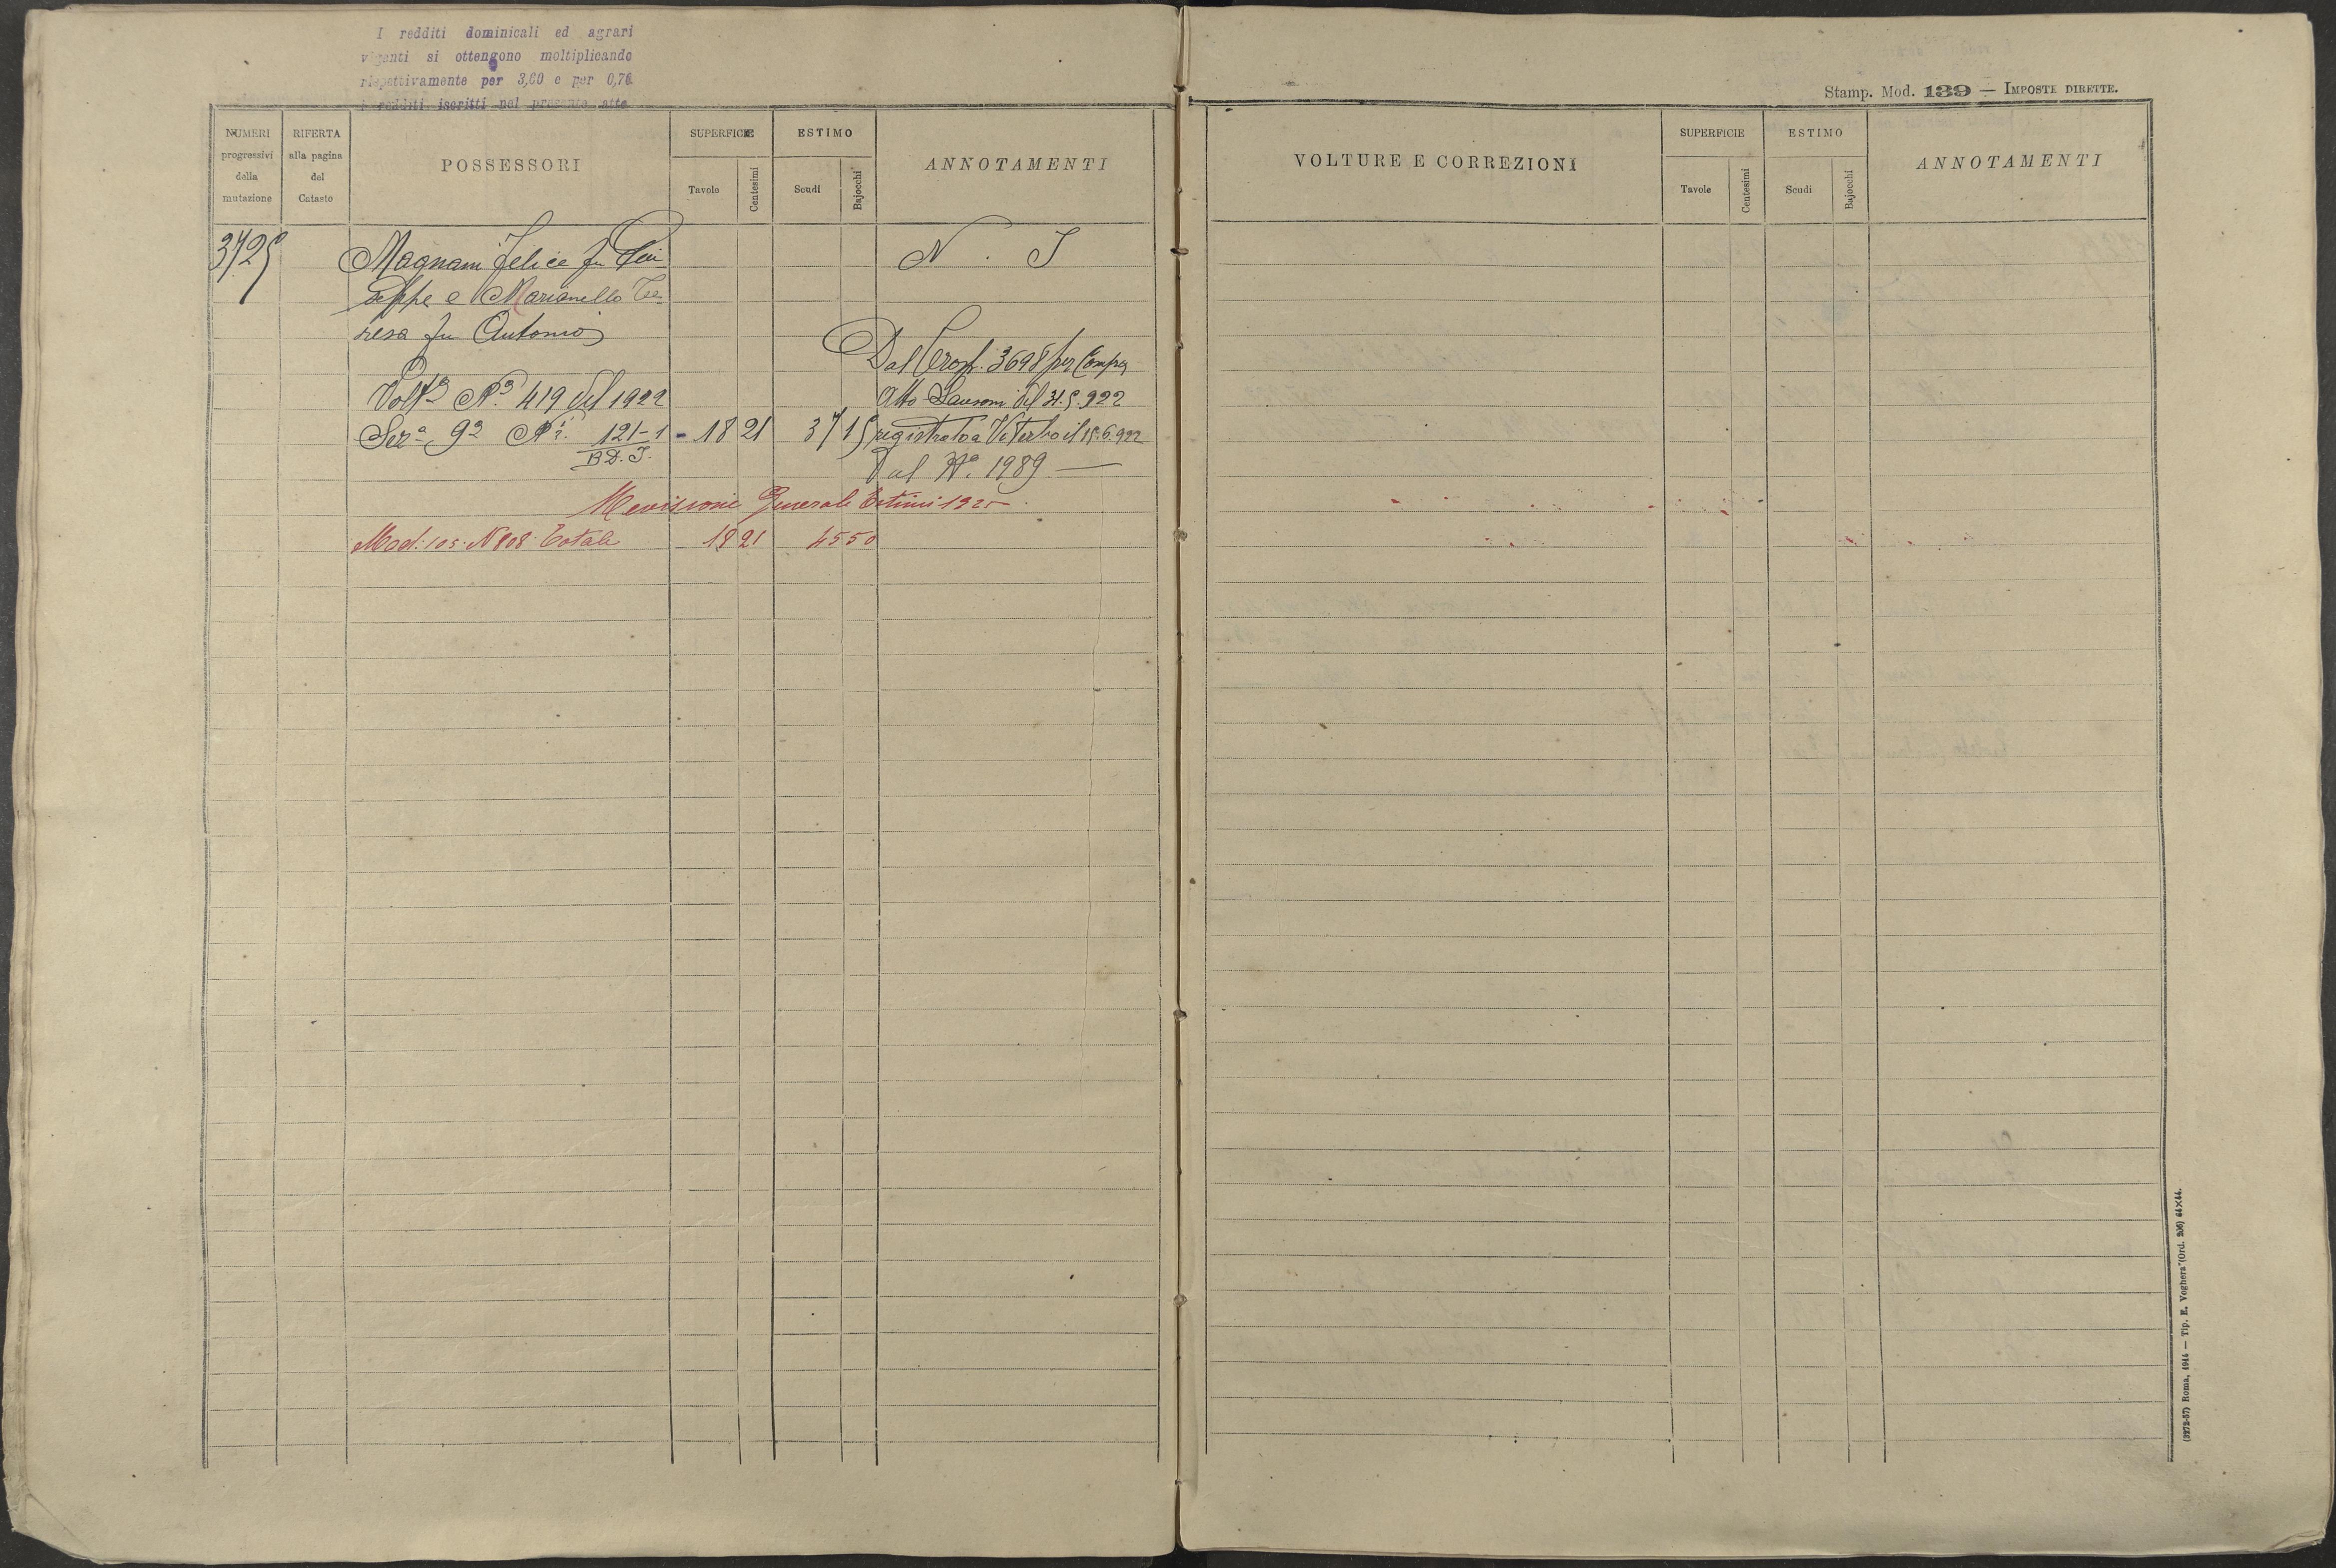 I redditi dominicali ed agrari
vigenti si ottengono moltiplicando
rispettivamente per 3,60 e per 0,76
i redditi iscritti nel presente atto
Stamp. Mod. 139 — IMPOSTE DIRETTE.
NUMERI progressivi della mutazione
RIFERTA alla pagina del Catasto
POSSESSORI
SUPERFICIE
Tavole
Centesimi
ESTIMO
Scudi
Bajocchi
ANNOTAMENTI
VOLTURE E CORREZIONI
SUPERFICIE
Tavole
Centesimi
ESTIMO
Scudi
Bajocchi
ANNOTAMENTI
3725 Magnani Felice fu Giu N. I
seppe e Marianello Te-
resa fu Antonio
Dal Prosp. 3698 per Compra
Volt.a N.o 419 del 1922 Atto del 31.5.922
Sez.a 9a N.i 121-1 - 18 21 37 15 registrato a Viterbo il 15.6.922
B.D.T. al N.o 1989
Revisione Generale Estimi 1925
Mod: 105. N 808. Totale 18 21 45 50
(3272-57) Roma, 1914 — Tip. E. Voghera (Ord. 236) 64×44.